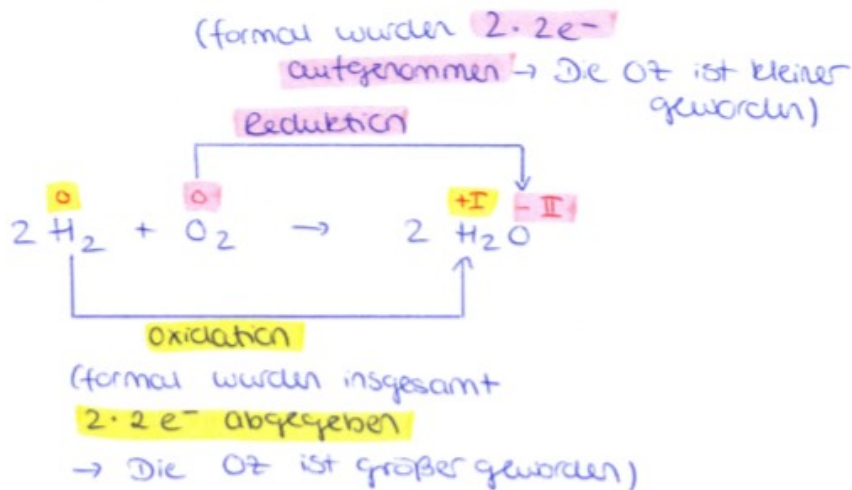 (formal wurden 2·2e⁻
aufgenommen → Die OZ ist kleiner
geworden)
Reduktion
0 0 +I -II
2 H₂ + O₂ → 2 H₂O
Oxidation
(formal wurden insgesamt
2·2e⁻ abgegeben
→ Die OZ ist größer geworden)